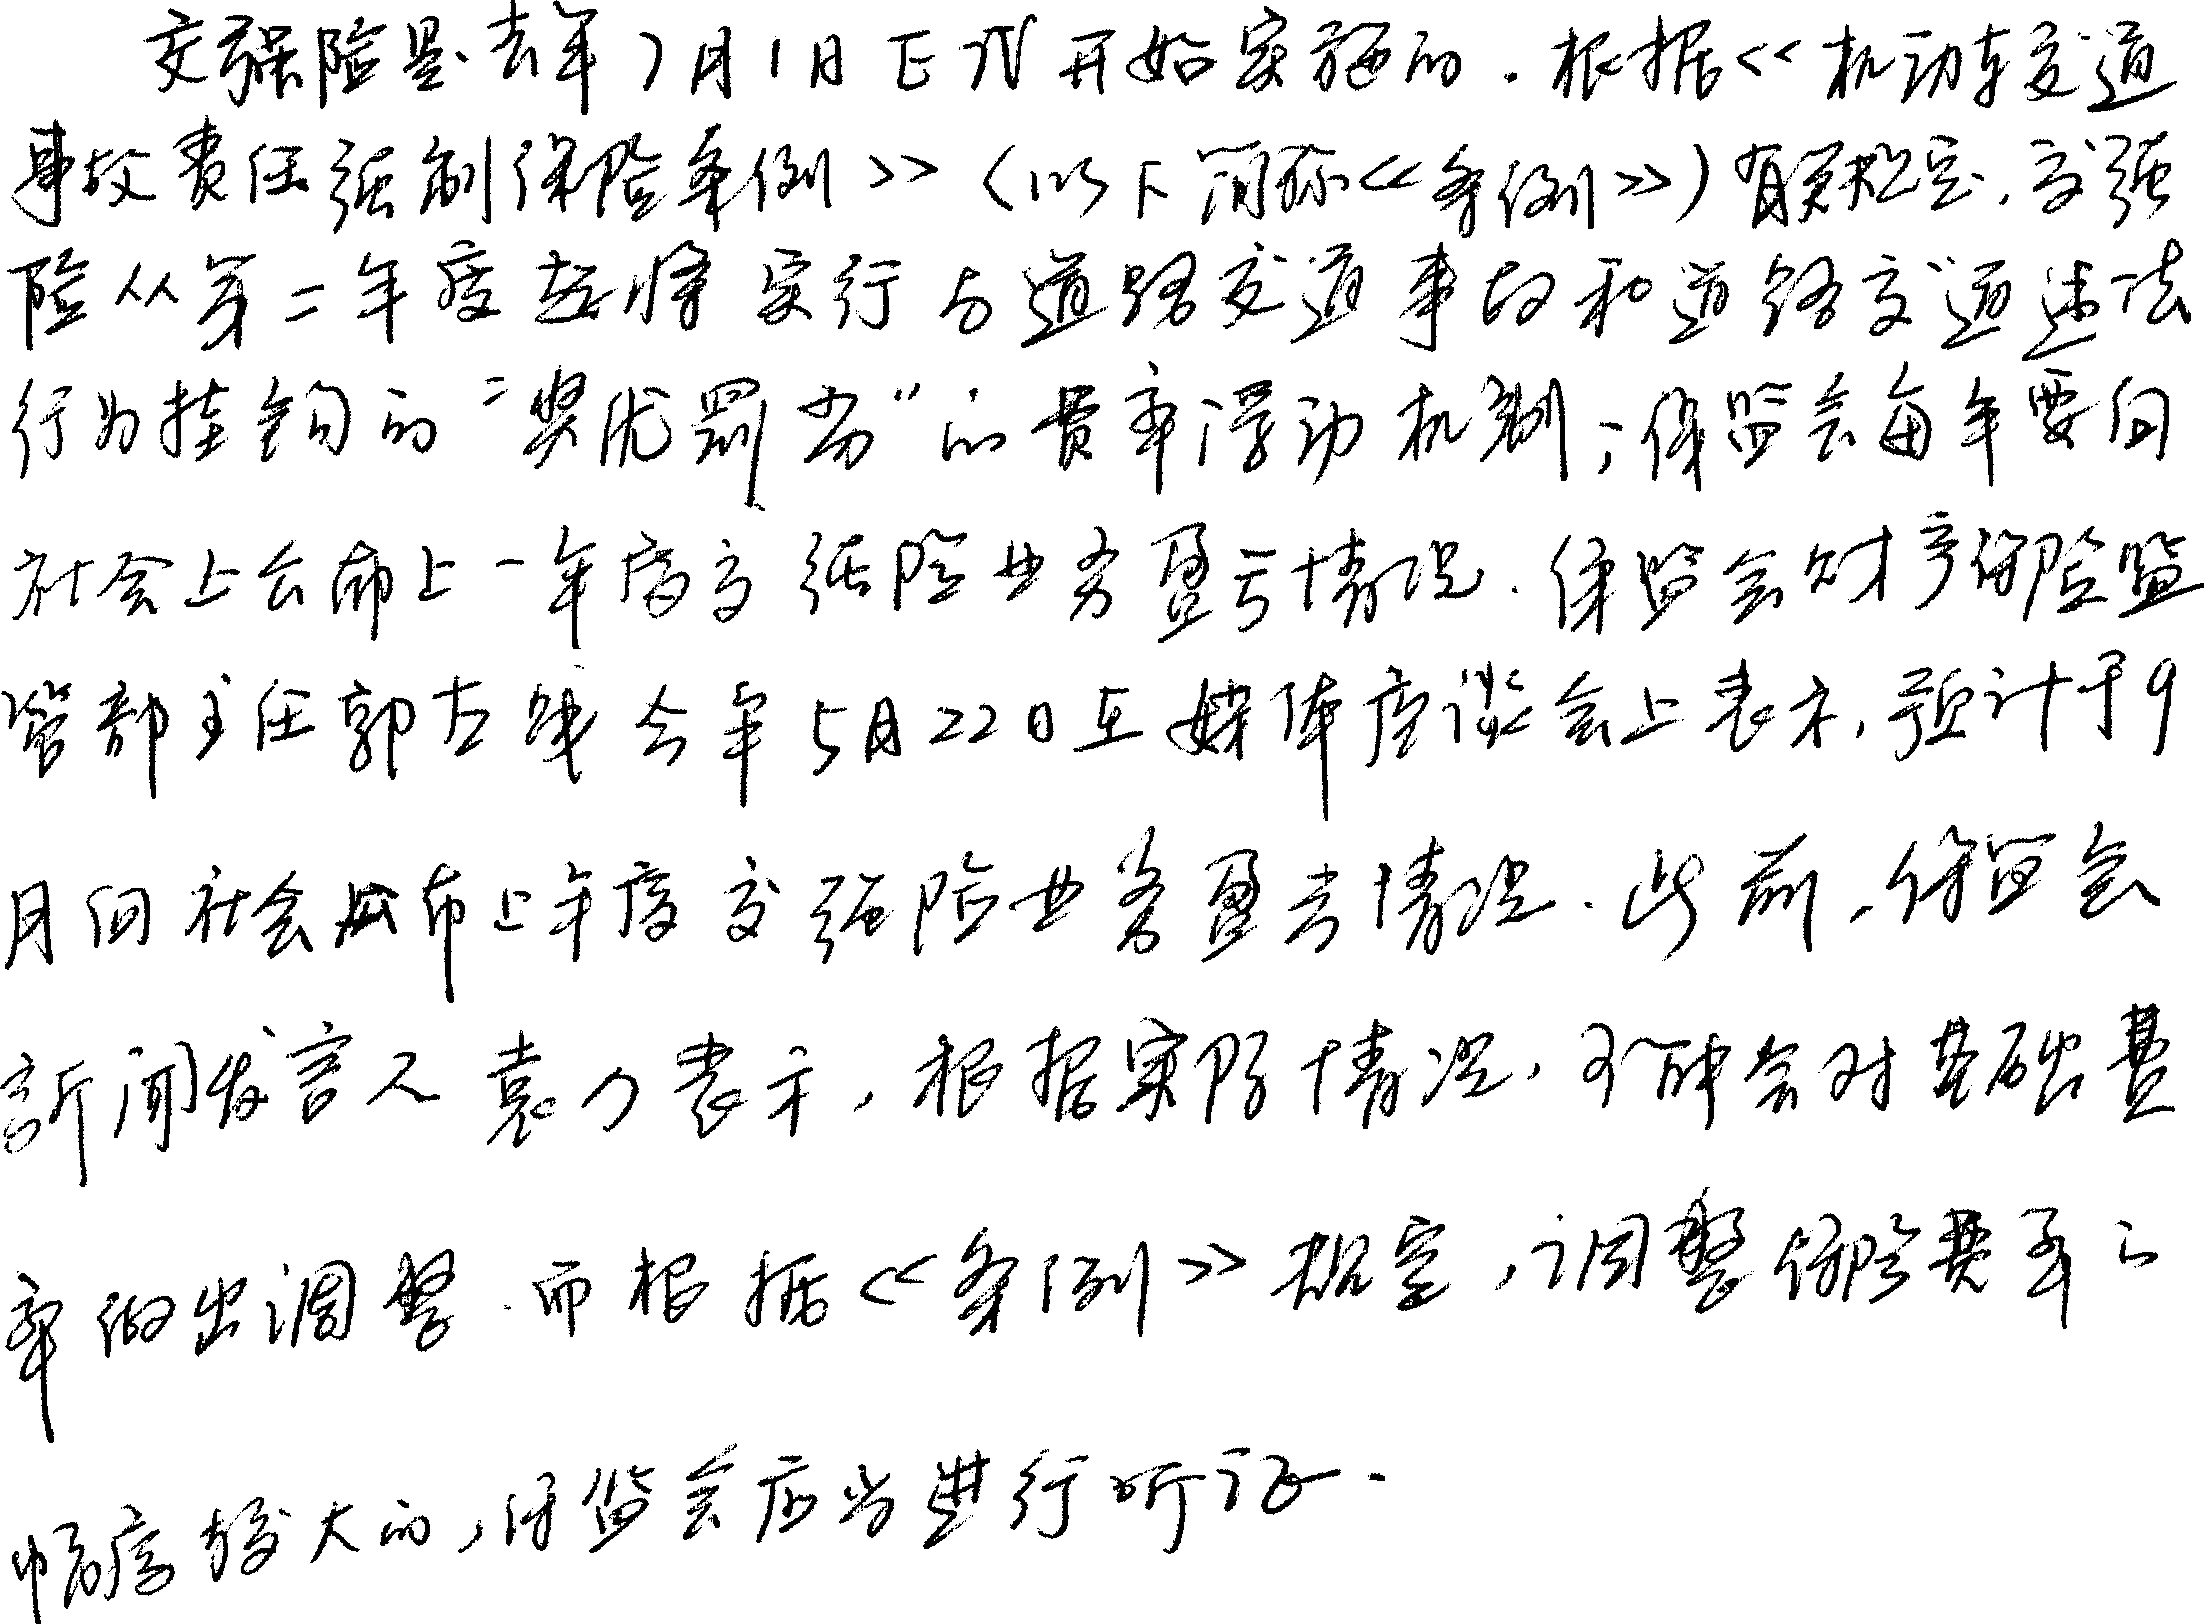 交强险是去年7月1日正式开始实施的.根据<<机动车交通
事故责任强制保险条例>>(以下简称<<条例>>)有关规定,交强
险从第二年度起将实行与道路交通事故和道路交通违法
行为挂钩的“奖优罚劣”的费率浮动机制;保监会每年要向
社会上公布上一年度交强险业务盈亏情况.保监会财产保险监
管部主任郭左践今年5月22日在媒体座谈会上表示,预计于9
月向社会公布上年度交强险业务盈亏情况.此前,保监会
新闻发言人袁力表示,根据实际情况,可能会对基础费
率做出调整.而根据<<条例>>规定,调整保险费率的
幅度较大的,保监会应当进行听证.